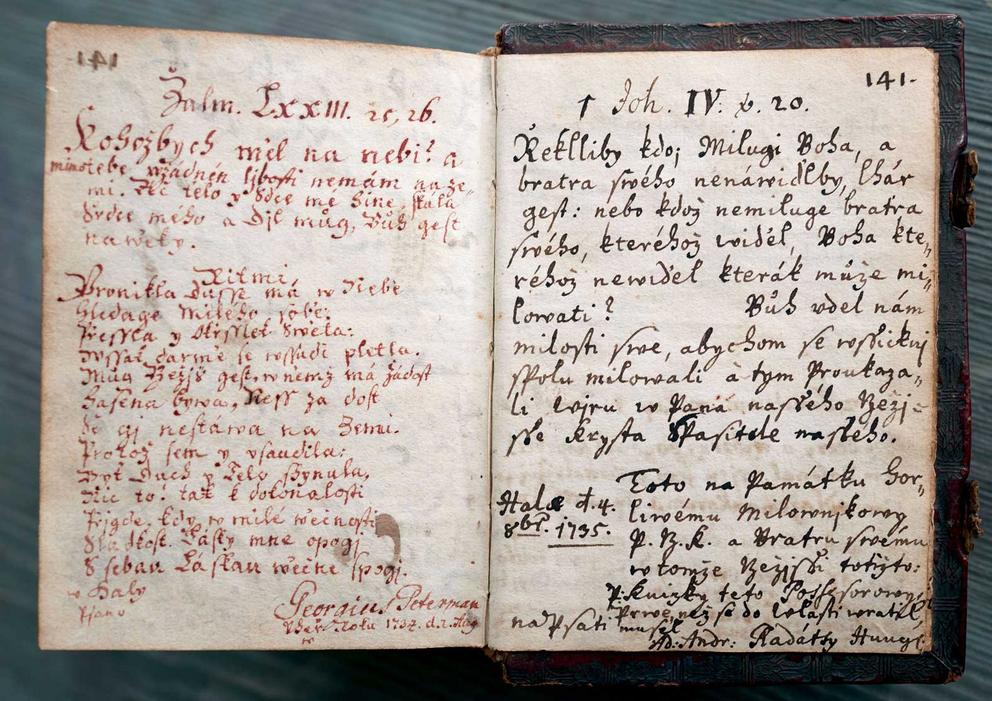 141
Žalm. LXXIII. 25, 26.
Kohožbych měl na nebi? a
mimo tebe w žádném libosti nemám na ze-
mi. Ač telo y Srdce mé hine, skála
Srdce mého a Djl můg, Bůh gest
na weky.
Ritmi
Pronikla Dusse má w Nebe
Hledage milého sobě:
Pressla y Okrsslek Sweta:
w wssudi pletla.
Můg Gežjš gest, w nemž má žádost
bywa, neff za dost
Se gj nestáwa na Zemi.
Protož sem y usaudila:
Byť Duch y Telo
Nic to: tak k dokonalosti
Prigde, kdy w milé wečnosti
Sladkost Lásky mne opogj
S sebau Láskau wečne spogj.
w Haly
Psano
Georgius Peterman
Roku 1734. d. 2. Aug
141.
1 Joh. IV. v. 20.
Řeklliby kdo; Milugi Boha, a
bratra swého nenáwidělby, lhár
gest: nebo kdož nemiluge bratra
swého, kteréhož widěl, Boha kte„
réhož newiděl kterák může mi„
lowati? Bůh vdel nám
milosti swe, abychom se wssickni
spolu milowali a tym Proukaza-
li wjru w Pana nasseho Gežj-
sse Krysta Spasitele nasseho.
Halæ d. 4.
8br. 1735.
Toto na Památku Hor„
liwému Milownjkowy
P. B. K. a Bratru swému
w tomže Gežjssi totižto:
P: Knižky teto Possesorowy,
Prwe než se do Wlasti wratil,
na Psati musel
Ad: Andr: Radatty Hung.